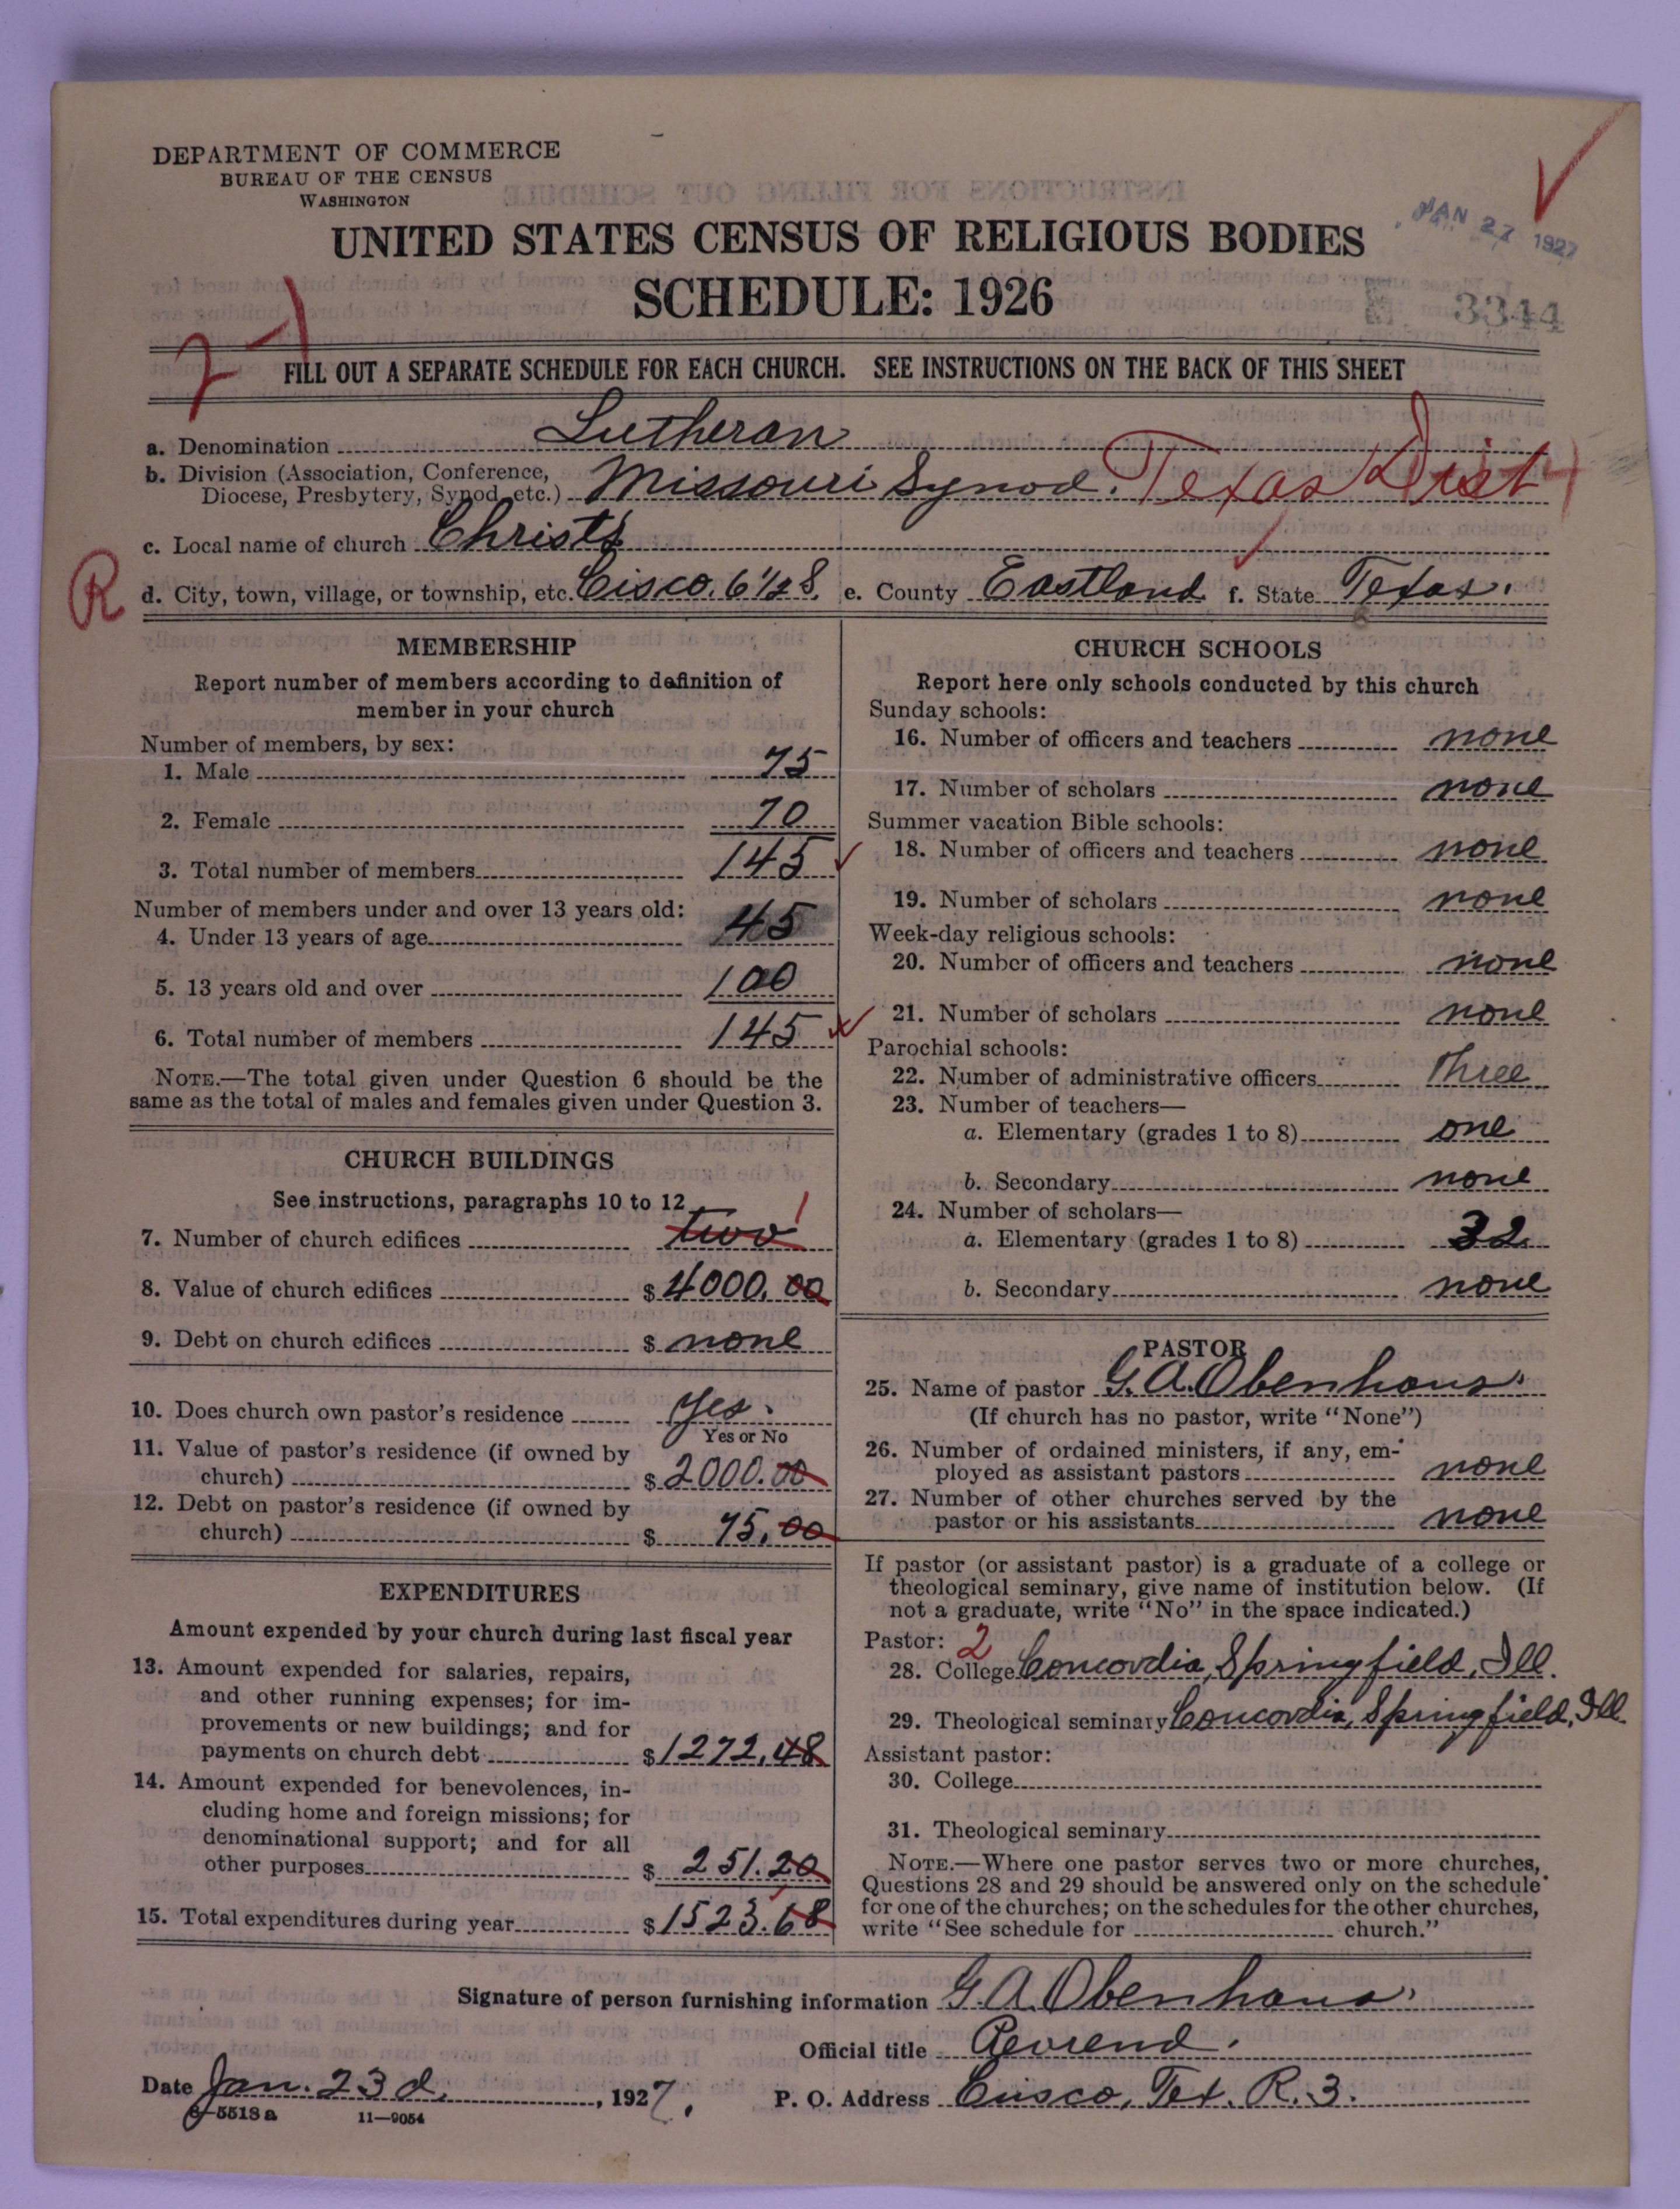 DEPARTMENT OF COMMERCE
BUREAU OF THE CENSUS
WASHINGTON
UNITED STATES CENSUS OF RELIGIOUS BODIES
JAN 27 1927
SCHEDULE: 1926
3344
FILL OUT A SEPARATE SCHEDULE FOR EACH CHURCH. SEE INSTRUCTIONS ON THE BACK OF THIS SHEET
a. Denomination Lutheran
b. Division (Association, Conference,
Diocese, Presbytery, Synod, etc.) Missouri Synod. Texas Dist
c. Local name of church Christ's
R
d. City, town, village, or township, etc. Cisco. 6½ S. e. County Eastland f. State Texas.
MEMBERSHIP
Report number of members according to definition of
member in your church
Number of members, by sex:
1. Male 75
2. Female 70
3. Total number of members 145
Number of members under and over 13 years old:
4. Under 13 years of age 45
5. 13 years old and over 100
6. Total number of members 145
NOTE.—The total given under Question 6 should be the
same as the total of males and females given under Question 3.
CHURCH BUILDINGS
See instructions, paragraphs 10 to 12
7. Number of church edifices two 1
8. Value of church edifices $ 4000.00
9. Debt on church edifices $ none
10. Does church own pastor's residence Yes.
Yes or No
11. Value of pastor's residence (if owned by
church) $ 2000.00
12. Debt on pastor's residence (if owned by
church) $ 75.00
EXPENDITURES
Amount expended by your church during last fiscal year
13. Amount expended for salaries, repairs,
and other running expenses; for im-
provements or new buildings; and for
payments on church debt $ 1272.48
14. Amount expended for benevolences, in-
cluding home and foreign missions; for
denominational support; and for all
other purposes $ 251.20
15. Total expenditures during year $ 1523.68
CHURCH SCHOOLS
Report here only schools conducted by this church
Sunday schools:
16. Number of officers and teachers none
17. Number of scholars none
Summer vacation Bible schools:
18. Number of officers and teachers none
19. Number of scholars none
Week-day religious schools:
20. Number of officers and teachers none
21. Number of scholars none
Parochial schools:
22. Number of administrative officers three
23. Number of teachers—
a. Elementary (grades 1 to 8) one
b. Secondary none
24. Number of scholars—
a. Elementary (grades 1 to 8) 32
b. Secondary none
PASTOR
25. Name of pastor G. A. Obenhaus.
(If church has no pastor, write "None")
26. Number of ordained ministers, if any, em-
ployed as assistant pastors none
27. Number of other churches served by the
pastor or his assistants none
If pastor (or assistant pastor) is a graduate of a college or
theological seminary, give name of institution below. (If
not a graduate, write "No" in the space indicated.)
Pastor: 2
28. College Concordia, Springfield, Ill.
29. Theological seminary Concordia, Springfield, Ill.
Assistant pastor:
30. College
31. Theological seminary
NOTE.—Where one pastor serves two or more churches,
Questions 28 and 29 should be answered only on the schedule
for one of the churches; on the schedules for the other churches,
write "See schedule for church."
Signature of person furnishing information G. A. Obenhaus.
Official title Reverend.
Date Jan. 23 d. , 1927. P. O. Address Cisco, Tex. R. 3.
8—5518 a 11—9054